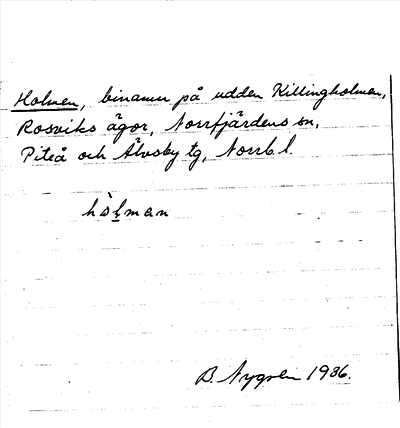 Holmen, binamn på udden Killingholmen,
Rosviks ägor, Norrfjärdens sn,
Piteå och Älvsby tg, Norrb. l.
hòl̲man
B. Nygren 1936.